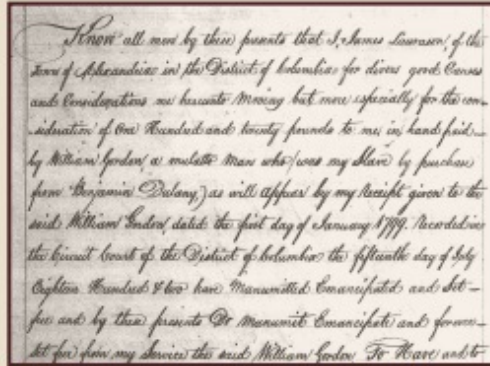 Know all men by these presents that I, James Lawrason, of the
Town of Alexandria in the District of Columbia for divers good Causes
and Considerations me hereunto Moving but more especially for the con-
sideration of One Hundred and twenty pounds to me in hand paid
by William Gordon, a mulatto Man who (was my Slave by purchase
from Benjamin Dulany,) as will appear by my Receipt given to the
said William Gordon, dated the first day of January 1799. Recorded in
the Circuit Court of the District of Columbia the fifteenth day of July
Eighteen Hundred & two have Manumitted Emancipated and Set-
free and by these presents Do Manumit Emancipate and forever
set free from my Service the said William Gordon To Have and to